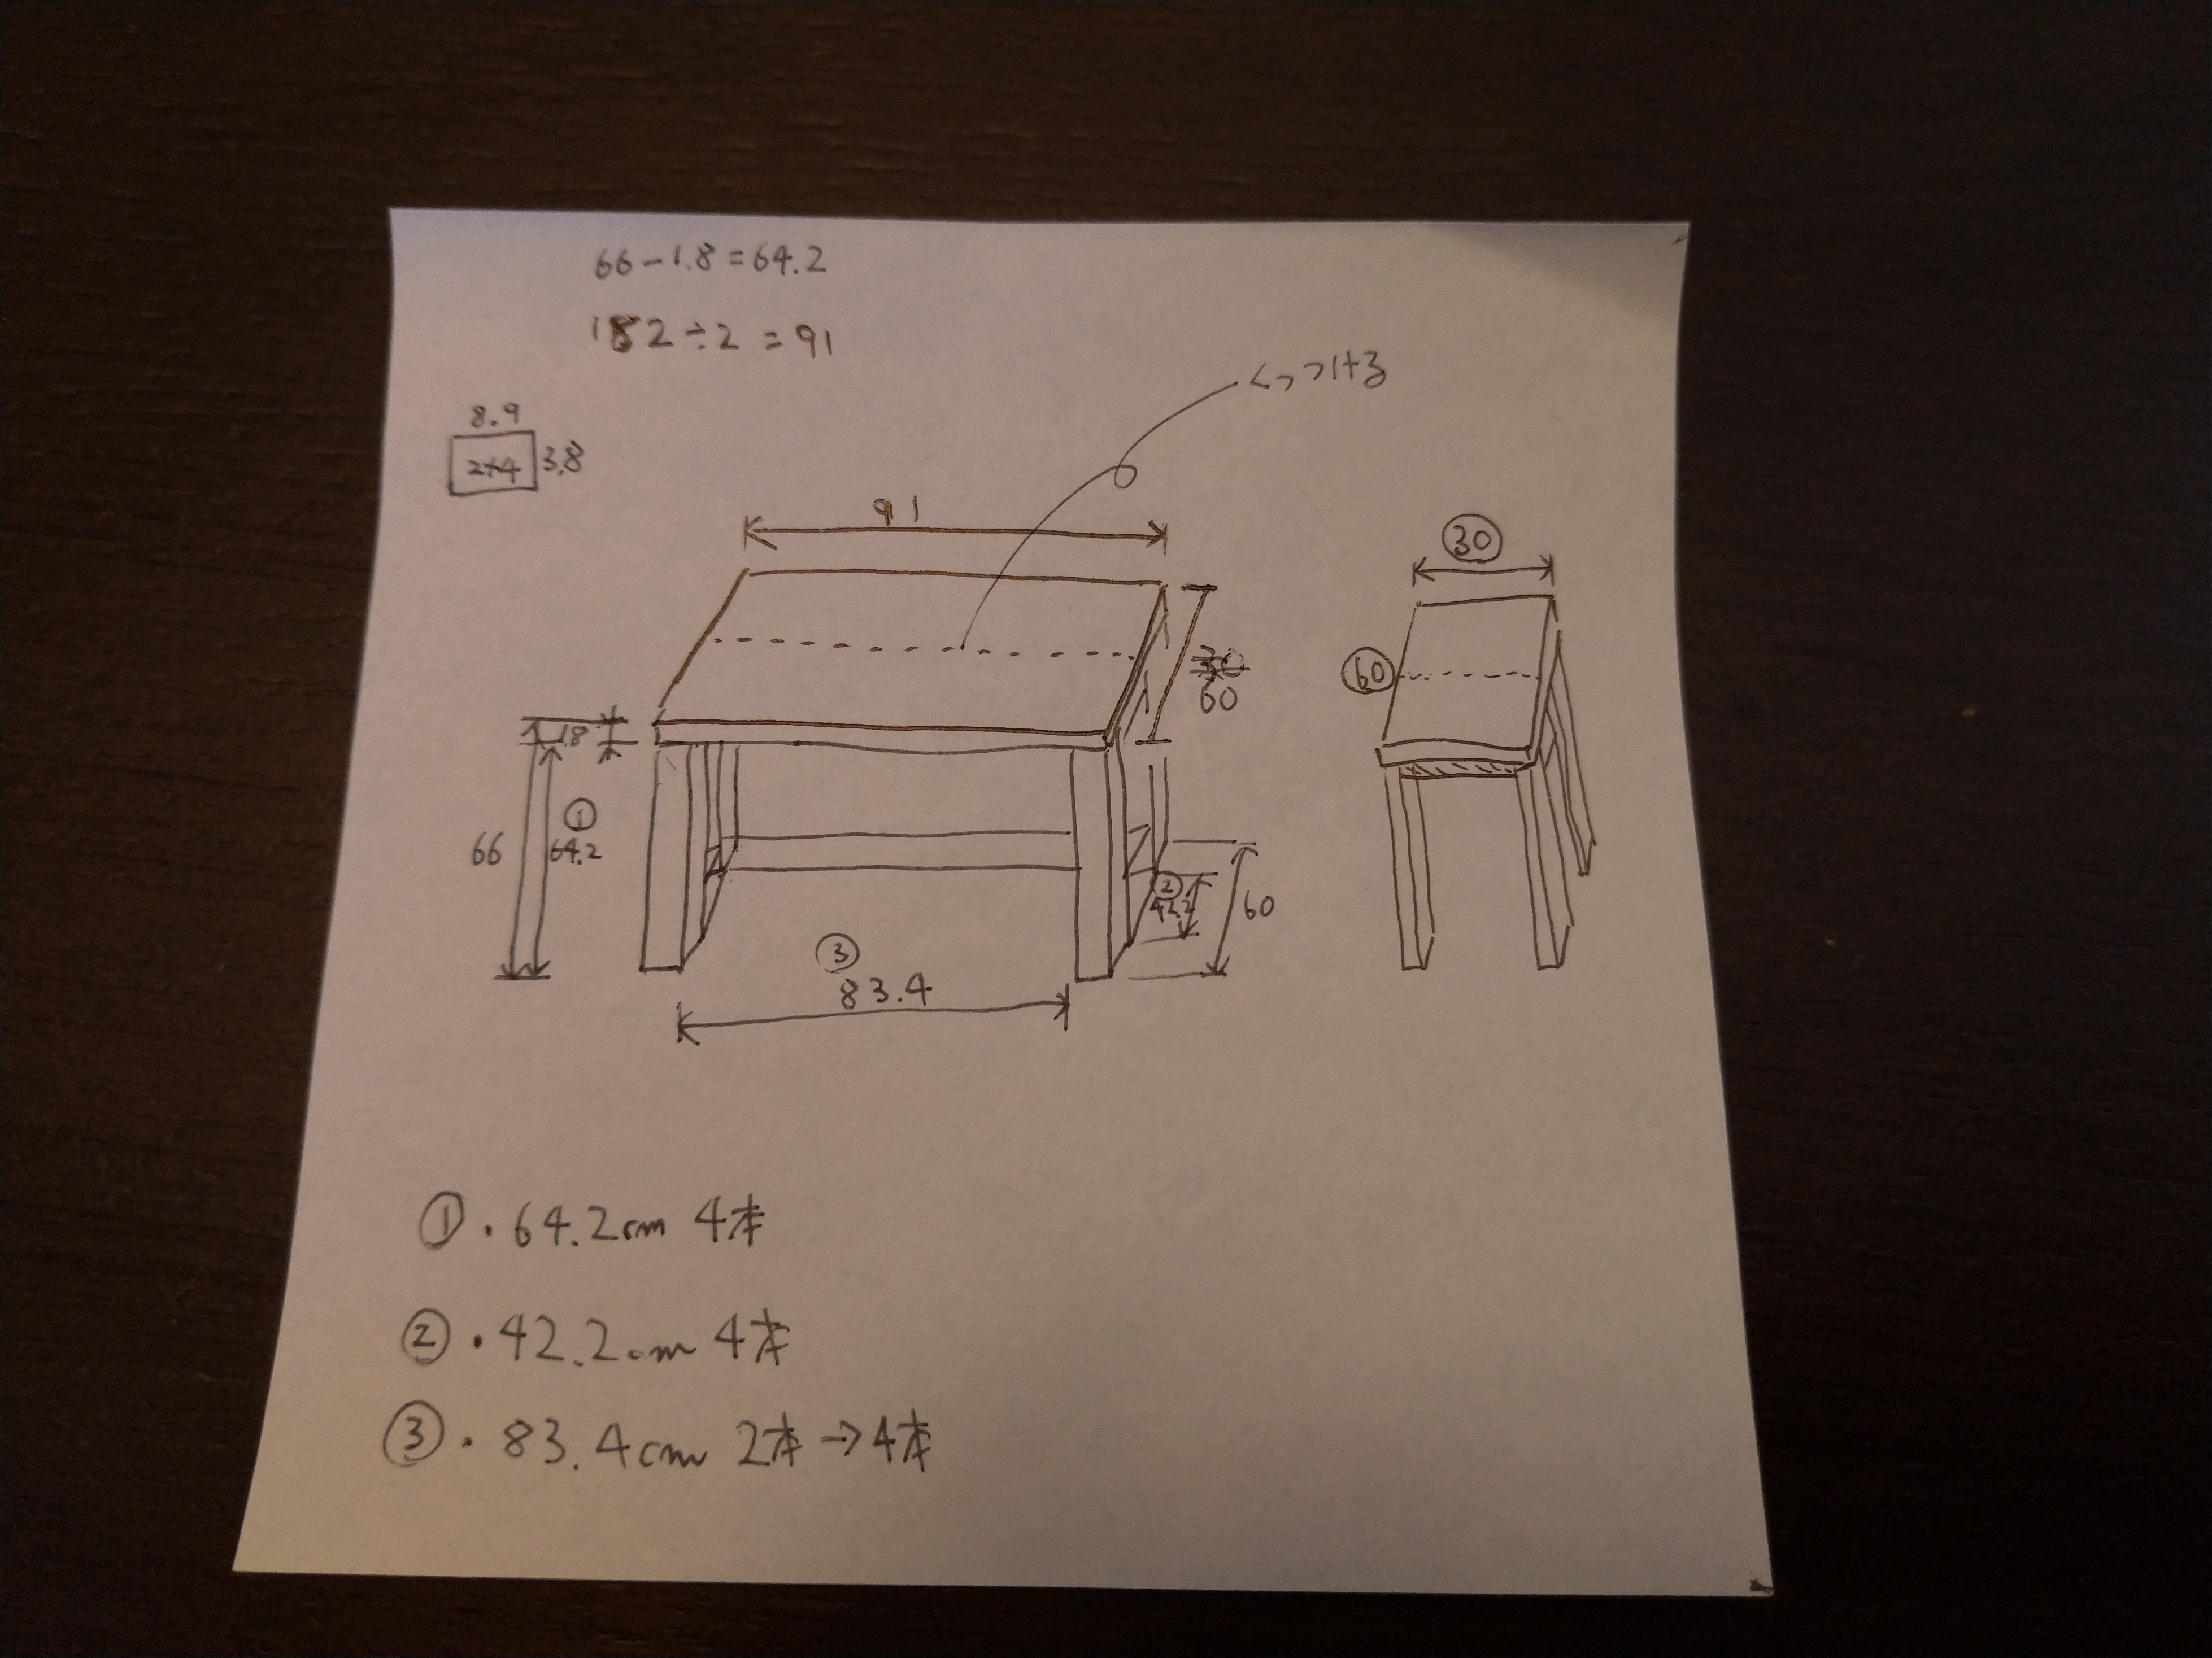 66-1.8=64.2
182÷2=91
8.9
2×4
3.8
くっつける
91
30
60
30
60
1.8
66
①
64.2
②
42.2
60
③
83.4
①・64.2cm 4本
②・42.2cm 4本
③・83.4cm 2本→4本